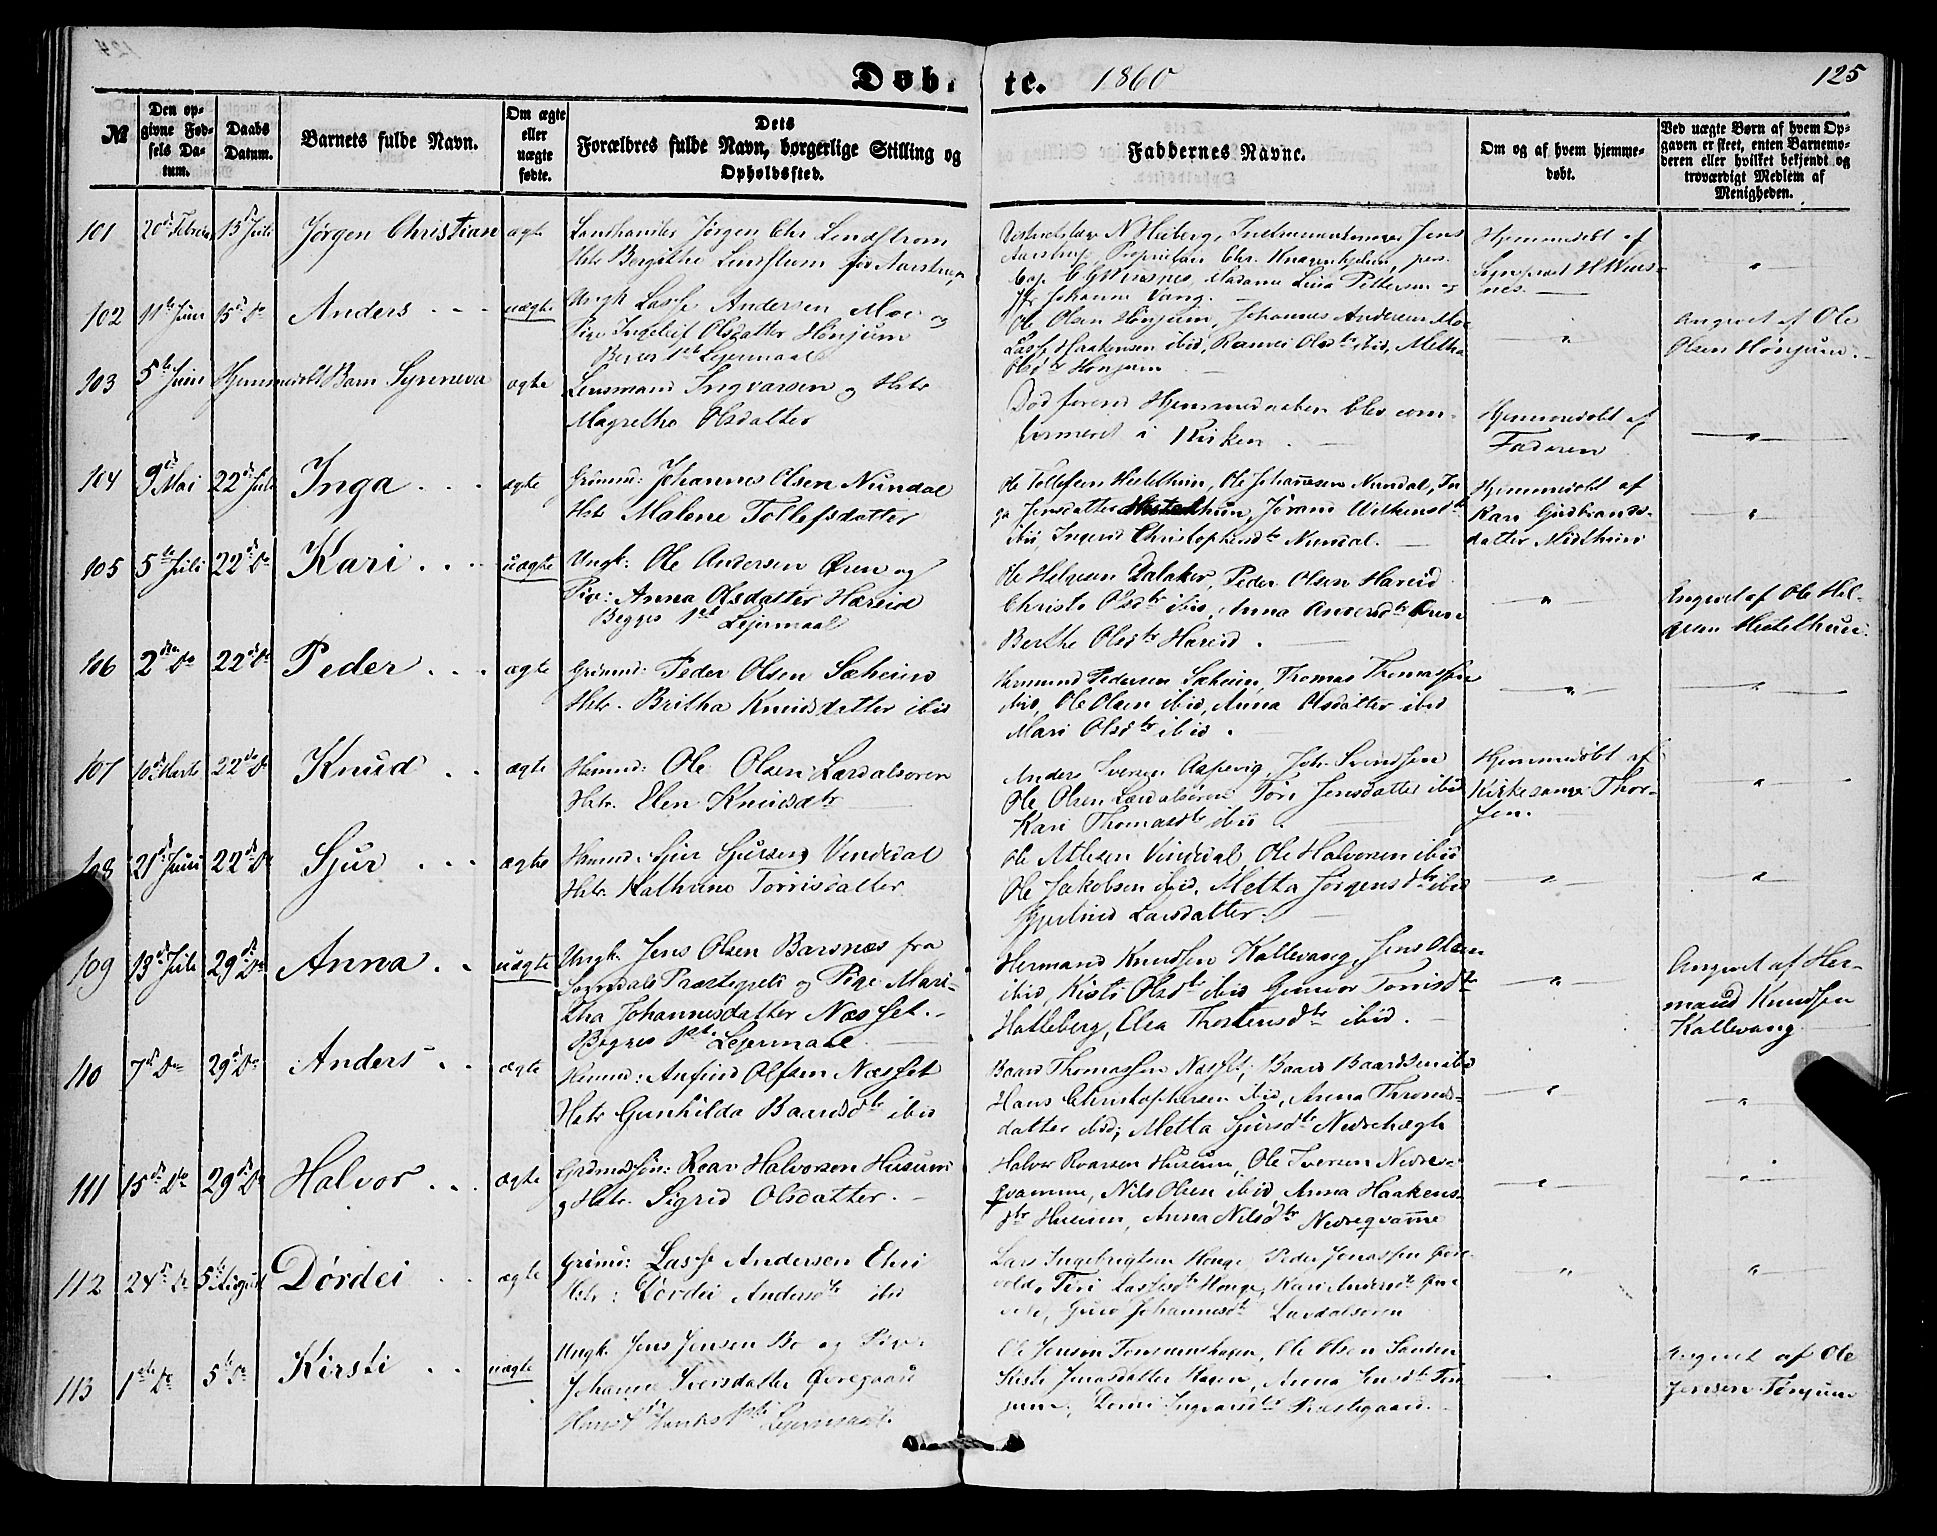 Døb-
te.
1860
125
№
Den op-
givne Fød-
sels Da-
tum.
Daabs
Datum.
Barnets fulde Navn.
Om ægte
eller
uægte
fødte.
Dets
Forældres fulde Navn, borgerlige Stilling og
Opholdssted.
Faddernes Navne.
Om og af hvem hjemme-
døbt.
Ved uægte Børn af hvem Op-
gaven er skeet, enten Barnemo-
deren eller hvilket bekjendt og
troværdigt Medlem af
Menigheden.
101
15d Juli
Jørgen Christian
ægte
Landhandler Jørgen Chr Lindstrøm
Hjemmedøbt af
102
11te Juni
15d Do
Anders
uægte
Ungk. Lasse Andersen Moe og
Pige Ingeleif Olsdatter Hønjum
Begges 1ste Leiermaal
Ole Olsen Hønjum, Johannes Andersen Moe
Lasse Haakensen ibid, Ranvei Olsdtr ibid, Metha
Olsdtr Hønjum
Angivet af Ole
Olsen Hønjum.
103
5te Juni
Hjemmedøbt Barn Synneva
ægte
Lensmand Ingvarsen og Hstr
Magretha Olsdatter
Død forend Hjemmedaaben blev con-
firmeret i Kirken.
Hjemmedøbt af
Faderen
104
9d Mai
22d Juli
Inga
ægte
Grdmd: Johannes Olsen Nundal
Hstr Malene Tollefsdatter
Ole Tollefsen Hestethun, Ole Johannesen Nundal, In-
ga Jensdatter
ibid, Ingerid Christophersdtr Nundal.
Hjemmedøbt af
Kari Gudbrands-
datter
105
5te Juli
22d Do
Kari
uægte
Ungk: Ole Andersen Øren og
Pige: Anna Olsdatter Hæreid
Begges 1ste Leiermaal
Ole Helgesen Dalaker, Peder Olsen Hæreid
Christi Olsdtr ibid, Anna Andersdtr Øren
Berthe Olsdtr Hæreid.
Angivet af Ole Hel-
gesen Hestethun.
106
2den Do
22d Do
Peder
ægte
Grdmd: Peder Olsen Sæheim
Hstr. Britha Knudsdatter ibid
Hermund Pedersen Sæheim, Thomas Thomassen
ibid, Ole Olsen ibid, Anna Olsdatter ibid
Mari Olsdtr ibid.
107
10d Marts
22d Do
Knud
ægte
Husmd: Ole Olsen Lærdalsøren
Hstr. Elen Knudsdtr
Anders Iversen Aspevig, Joh. Svendsen
Ole Olsen Lærdalsøren, Tori Jensdatter ibid
Kari Thomasdtr ibid
Hjemmedøbt af
Kirkesanger Thor-
sen.
108
21d Juni
22d Do
Sjur
ægte
Husmd: Sjur Sjursen Vindedal
Hstr. Kathrine Torrisdatter
Ole Atlesen Vindedal, Ole Halvorsen ibid
Ole Jakobsen ibid, Metta Jørgensdtr ibid
Gjertrud Larsdatter.
109
13d Juli
29d Do
Anna
uægte
Ungk. Jens Olsen Barsnæs fra
Sogndals Præstegjeld og Pige Mari-
tha Johannesdatter Næsset.
Begges 1ste Leiermaal
Hermand Knudsen Kallevang, Jens Olsen
ibid, Kisti Olsdtr ibid Gunvor Torrisdtr
Halleberg, Elea Thostensdtr ibid.
Angivet af Her-
mand Knudsen
Kallevang
110
7d Do
29d Do
Anders
ægte
Husmd: Anfind Olssen Næsset
Hstr Gunhilda Baardsdtr ibid
Baard Thomassen Næsset, Baard Baardsen ibid
Hans Christophersen ibid, Anna Thronds-
datter ibid, Metta Sjursdtr Nedrehægh
111
15d Do
29d Do
Halvor
ægte
Grdmdssøn: Roar Halvorsen Husum
og Hstr. Sigrid Olsdatter.
Halvor Roarsen Husum, Ole Iversen Nedre-
qvamme, Nils Olsen ibid, Anna Haakens-
dtr Husum, Anna Nilsdtr Nedreqvamme
112
24d Do
5te August
Dørdei
ægte
Grdmd: Lasse Andersen Eri
Hstr: Dørdei Andersdtr ibid
Lars Ingebrigtsen Houge, Peder Jonassen
Guro Johannesdtr Lærdalsøren
113
1ste Do
5te Do
Kirsti
uægte
Ungk. Jens Jensen Bø og Pige
Johanne Iversdatter Øvregaard
Leiermaal
Ole Jensen
Ole Olsen Sanden
Kisti Jonasdatter
Anna Jensdtr Tøn-
jum,
Angivet af Ole
Jensen Tønjum